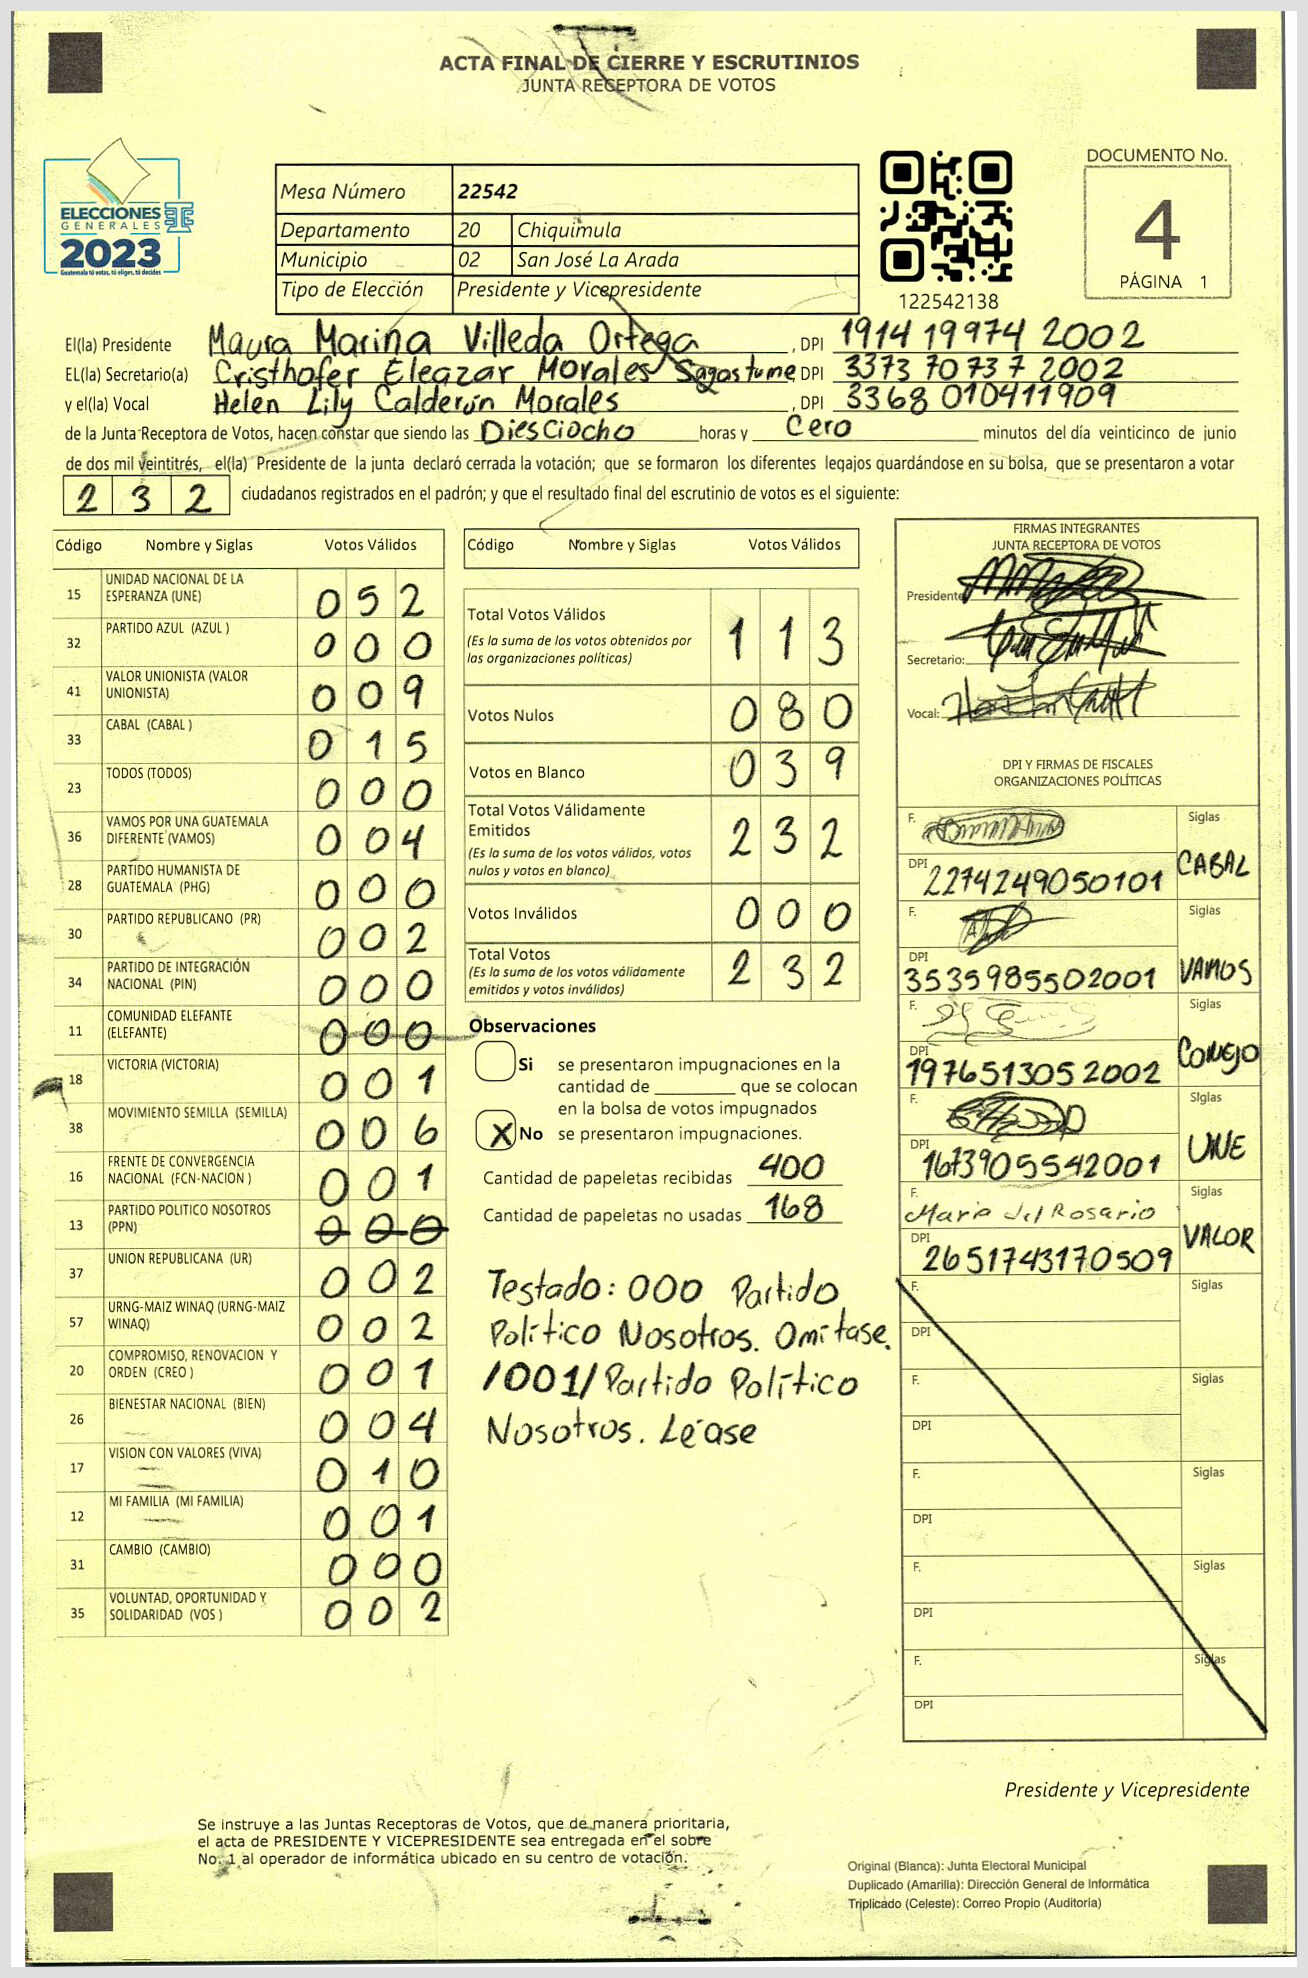 ACTA FINAL DE CIERRE Y ESCRUTINIOS
JUNTA RECEPTORA DE VOTOS
ELECCIONES
GENERALES
2023
Guatemala tú votas, tú eliges, tú decides
Mesa Número 22542
Departamento 20 Chiquimula
Municipio 02 San José La Arada
Tipo de Elección Presidente y Vicepresidente
122542138
DOCUMENTO No.
4
PÁGINA 1
El(la) Presidente Maura Marina Villeda Ortega, DPI 1914 19974 2002
EL(la) Secretario(a) Cristhofer Eleazar Morales Sagastume, DPI 3373 70737 2002
y el(la) Vocal Helen Lily Calderón Morales, DPI 3368 010411909
de la Junta Receptora de Votos, hacen constar que siendo las Diesciocho horas y Cero minutos del día veinticinco de junio
de dos mil veintitrés, el(la) Presidente de la junta declaró cerrada la votación; que se formaron los diferentes legajos guardándose en su bolsa, que se presentaron a votar
232 ciudadanos registrados en el padrón; y que el resultado final del escrutinio de votos es el siguiente:
Código Nombre y Siglas Votos Válidos
15 UNIDAD NACIONAL DE LA ESPERANZA (UNE) 052
32 PARTIDO AZUL (AZUL ) 000
41 VALOR UNIONISTA (VALOR UNIONISTA) 009
33 CABAL (CABAL ) 015
23 TODOS (TODOS) 000
36 VAMOS POR UNA GUATEMALA DIFERENTE (VAMOS) 004
28 PARTIDO HUMANISTA DE GUATEMALA (PHG) 000
30 PARTIDO REPUBLICANO (PR) 002
34 PARTIDO DE INTEGRACIÓN NACIONAL (PIN) 000
11 COMUNIDAD ELEFANTE (ELEFANTE) 000
18 VICTORIA (VICTORIA) 001
38 MOVIMIENTO SEMILLA (SEMILLA) 006
16 FRENTE DE CONVERGENCIA NACIONAL (FCN-NACION ) 001
13 PARTIDO POLITICO NOSOTROS (PPN) 000
37 UNION REPUBLICANA (UR) 002
57 URNG-MAIZ WINAQ (URNG-MAIZ WINAQ) 002
20 COMPROMISO, RENOVACION Y ORDEN (CREO ) 001
26 BIENESTAR NACIONAL (BIEN) 004
17 VISION CON VALORES (VIVA) 010
12 MI FAMILIA (MI FAMILIA) 001
31 CAMBIO (CAMBIO) 000
35 VOLUNTAD, OPORTUNIDAD Y SOLIDARIDAD (VOS ) 002
Código Nombre y Siglas Votos Válidos
Total Votos Válidos 113
(Es la suma de los votos obtenidos por
las organizaciones políticas)
Votos Nulos 080
Votos en Blanco 039
Total Votos Válidamente
Emitidos 232
(Es la suma de los votos válidos, votos
nulos y votos en blanco)
Votos Inválidos 000
Total Votos 232
(Es la suma de los votos válidamente
emitidos y votos inválidos)
Observaciones
Si se presentaron impugnaciones en la
cantidad de ________ que se colocan
en la bolsa de votos impugnados
X No se presentaron impugnaciones.
Cantidad de papeletas recibidas 400
Cantidad de papeletas no usadas 168
Testado: 000 Partido
Político Nosotros. Omítase.
/001/Partido Político
Nosotros. Léase
FIRMAS INTEGRANTES
JUNTA RECEPTORA DE VOTOS
Presidente:
Secretario:
Vocal:
DPI Y FIRMAS DE FISCALES
ORGANIZACIONES POLÍTICAS
F. Siglas
DPI 2274249050101 CABAL
F. Siglas
DPI 3535985502001 VAMOS
F. Siglas
DPI 1976513052002 CONEJO
F. Siglas
DPI 1673905542001 UNE
F. Maria del Rosario Siglas
DPI 2651743170509 VALOR
F. Siglas
DPI
F. Siglas
DPI
F. Siglas
DPI
F. Siglas
DPI
F. Siglas
DPI
Presidente y Vicepresidente
Se instruye a las Juntas Receptoras de Votos, que de manera prioritaria,
el acta de PRESIDENTE Y VICEPRESIDENTE sea entregada en el sobre
No. 1 al operador de informática ubicado en su centro de votación.
Original (Blanca): Junta Electoral Municipal
Duplicado (Amarilla): Dirección General de Informática
Triplicado (Celeste): Correo Propio (Auditoría)